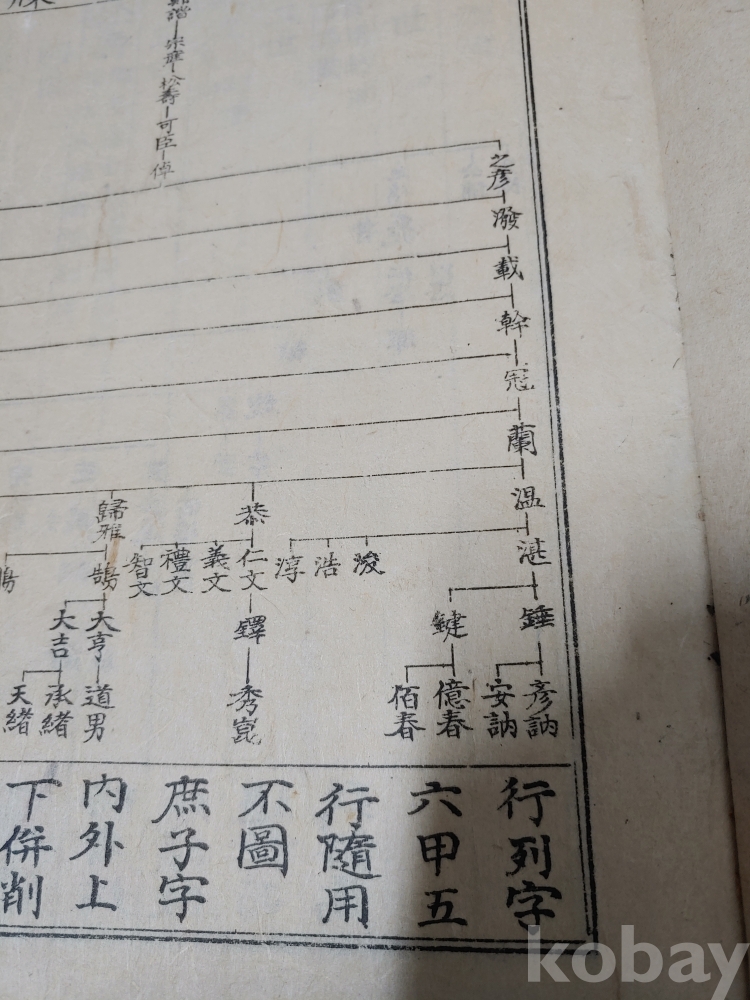 宗瑋 松壽 可臣 倬
之彦
潑
載
幹
冠
蘭
溫 恭 歸雅
湛 浚 浩 淳 仁文 義文 禮文 智文 鵠
錘 鍵 鐸 大亨 大吉
彦訥 安訥 億春 佰春 秀崑 道男 承緒 天緒
行列字
六甲五
行隨用
不圖
庶子字
內外上
下併削
kobay